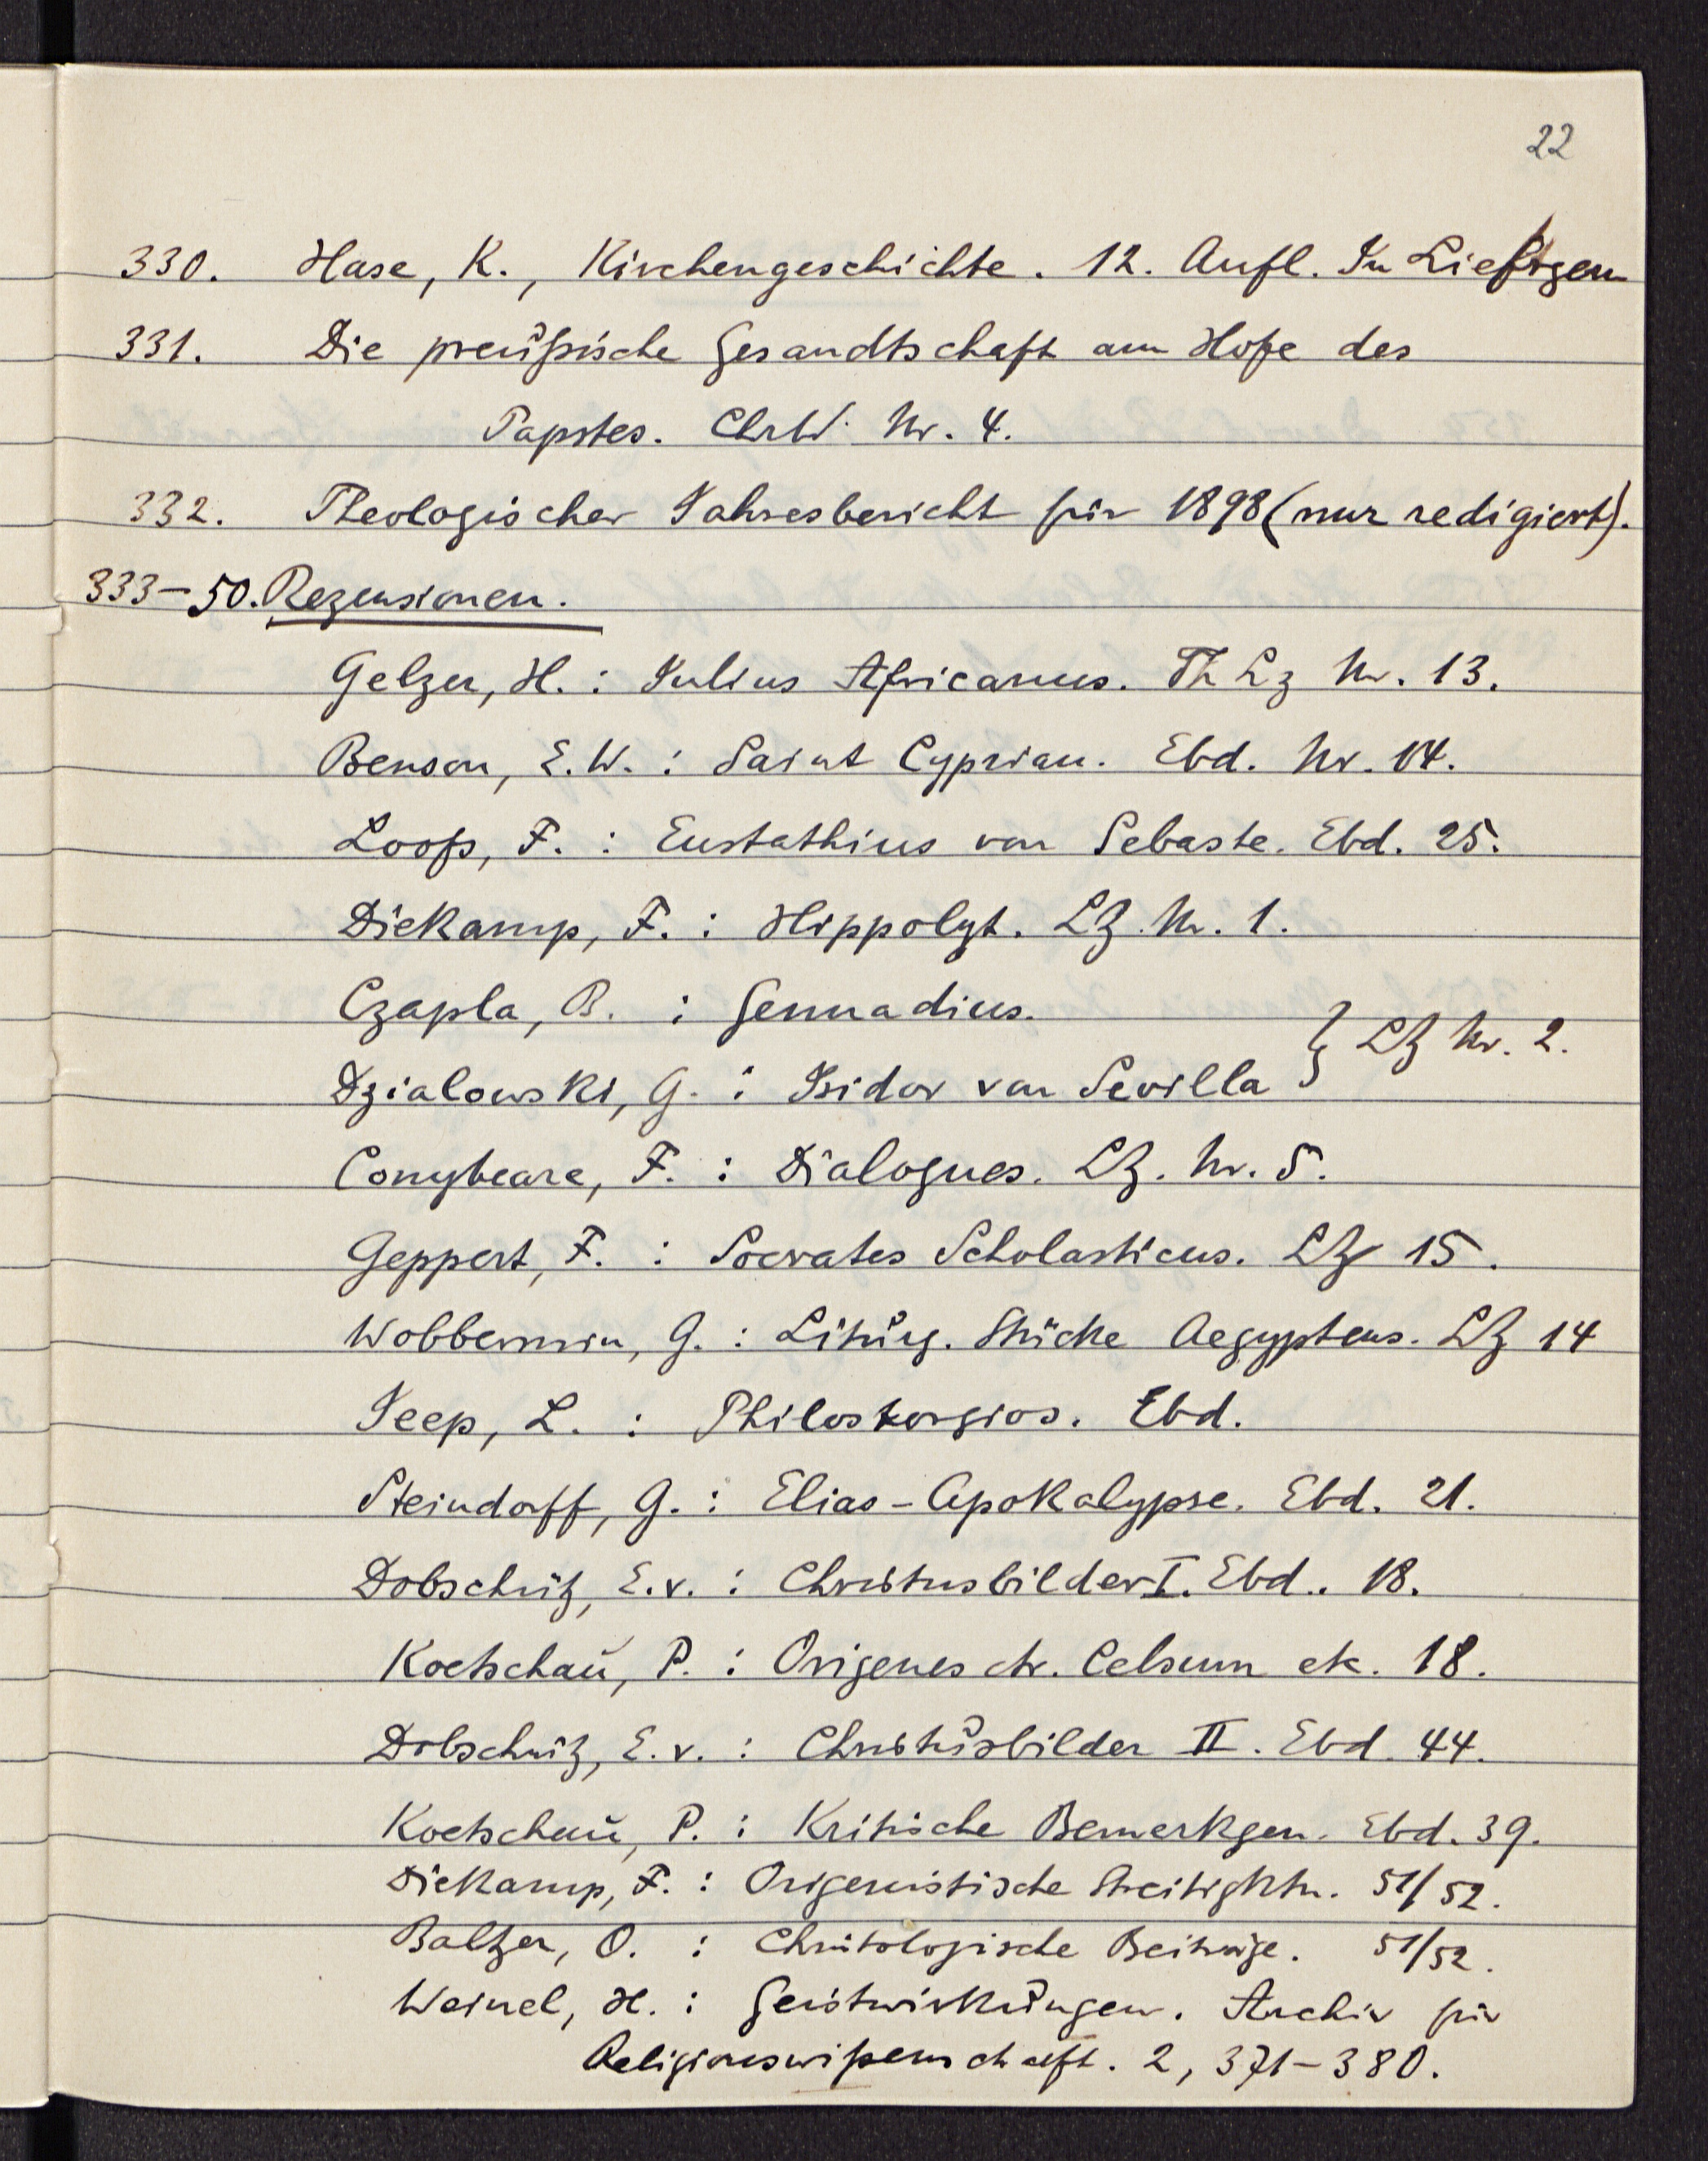 22
330. Hase, K., Kirchengeschichte. 12. Aufl. In Liefrgen
331. Die preußische Gesandtschaft am Hofe des
Papstes. ChrW. Nr. 4.
332. Theologischer Jahresbericht für 1898 (nur redigiert).
333-50. Rezensionen.
Gelzer, H. : Julius Africanus. Th Lz Nr. 13.
Benson, E.W. : Saint Cyprian. Ebd. Nr. 14.
Loofs, F. : Eustathius von Sebaste. Ebd. 25.
Diekamp, F. : Hippolyt. LZ. Nr. 1.
Czapla, B. : Gennadius.
Dzialowski, G. : Isidor von Sevilla } LZ Nr. 2.
Conybeare, F. : Dialogues. LZ. Nr. 5.
Geppert, F. : Socrates Scholasticus. LZ 15.
Wobbermin, G. : Liturg. Stücke Aegyptens. LZ 14
Jeep, L. : Philostorgios. Ebd.
Steindorff, G. : Elias-Apokalypse. Ebd. 21.
Dobschütz, E.v. : Christusbilder I. Ebd. 18.
Koetschau, P. : Origenes ctr. Celsum etc. 18.
Dobschütz, E.v. : Christusbilder II. Ebd. 44.
Koetschau, P. : Kritische Bemerkgen. Ebd. 39.
Diekamp, F. : Origenistische Streitigktn. 51/52.
Baltzer, O. : Christologische Beiträge. 51/52.
Weinel, H. : Geistwirkungen. Archiv für
Religionswißenschaft. 2, 371-380.